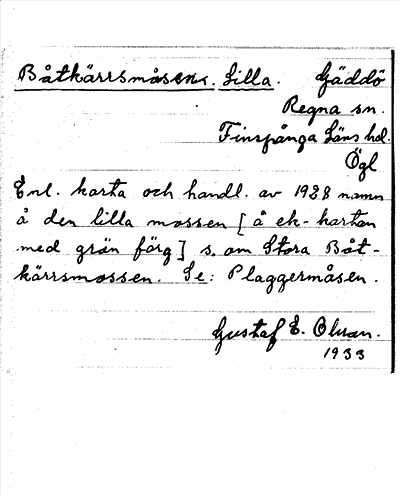 Båtkärrsmåsen. Lilla. Gäddö
Regna sn.
Finspånga Läns hd.
Ögl
Enl. karta och handl. av 1928 namn
å den lilla mossen [å ek-kartan
med grön färg] s. om Stora Båt-
kärrsmossen. Se: Plaggermåsen.
Gustaf E. Olsson.
1933